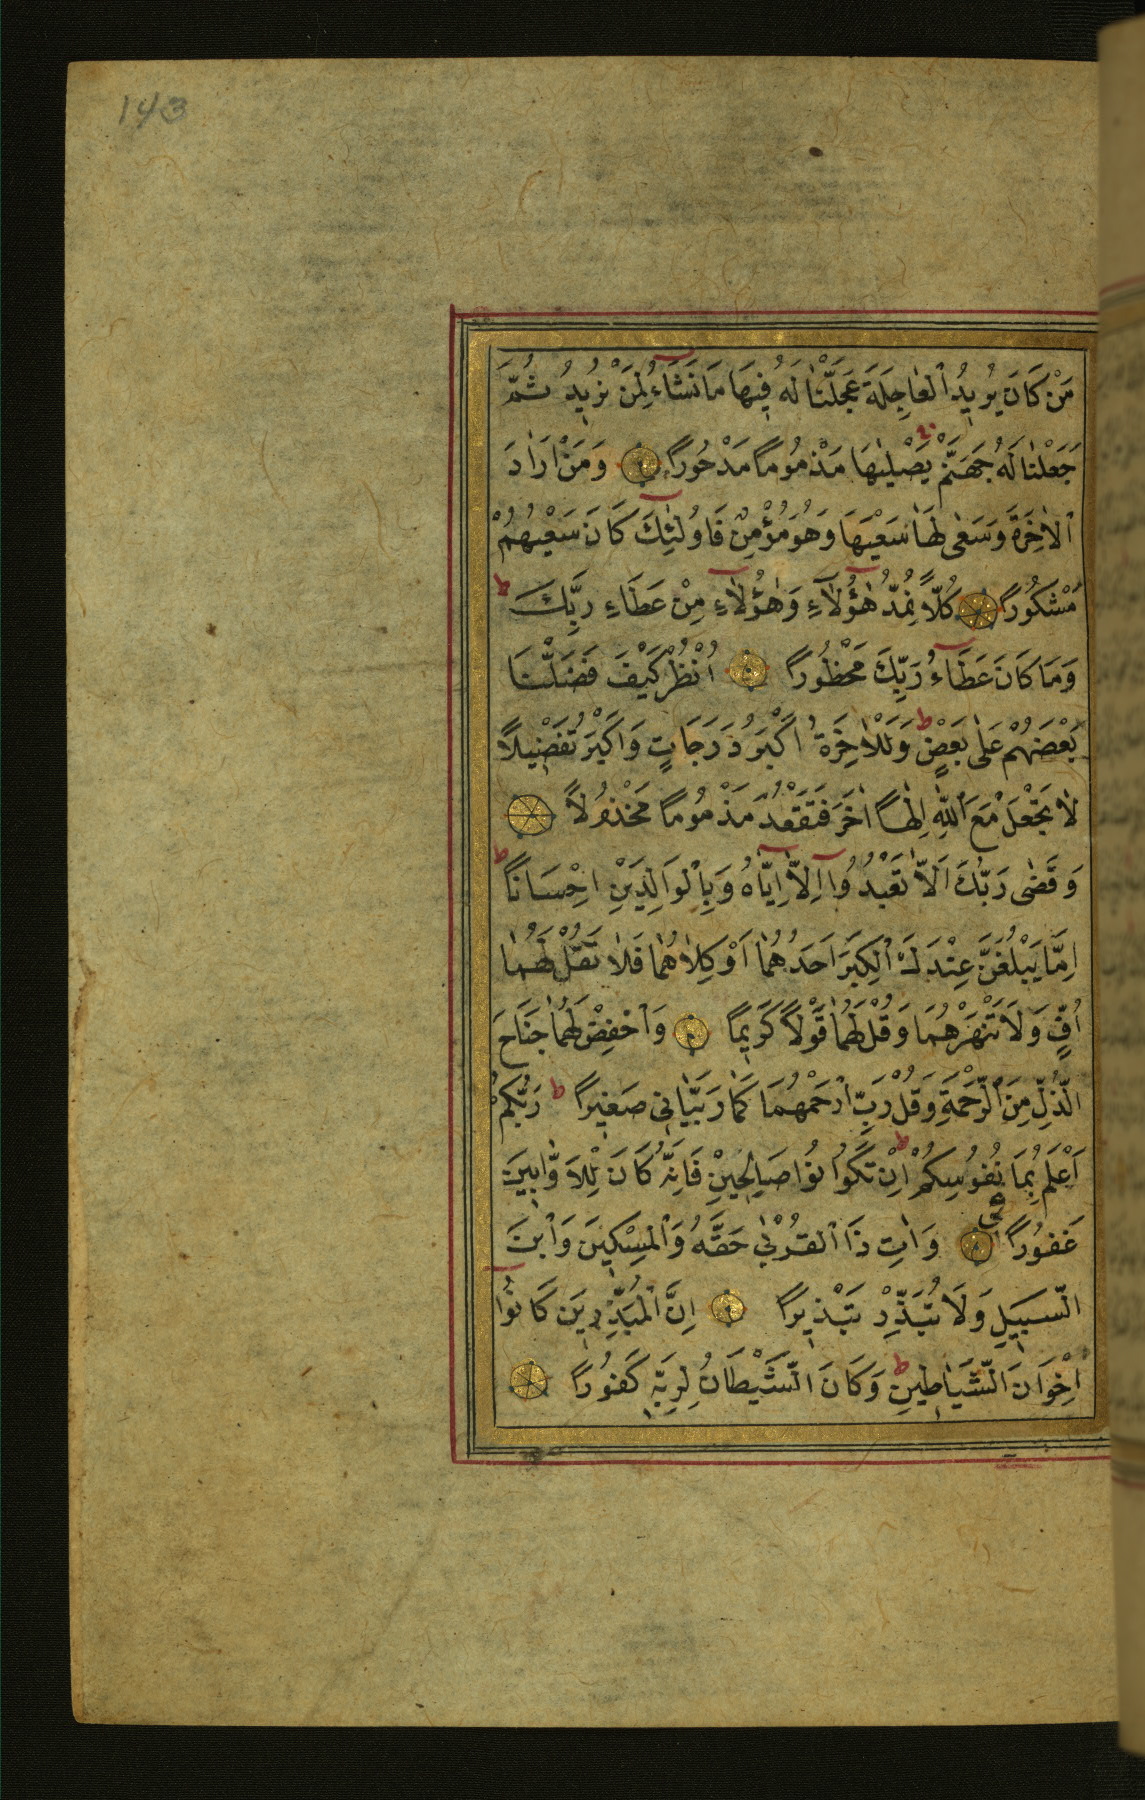 143
مَنْ كَانَ يُرِيدُ الْعَاجِلَةَ عَجَّلْنَا لَهُ فِيهَا مَا نَشَاءُ لِمَنْ نُرِيدُ ثُمَّ
جَعَلْنَا لَهُ جَهَنَّمَ يَصْلٰيهَا مَذْمُومًا مَدْحُورًا وَمَنْ اَرَادَ
الْاٰخِرَةَ وَسَعٰى لَهَا سَعْيَهَا وَهُوَ مُؤْمِنٌ فَاُولٰئِكَ كَانَ سَعْيُهُمْ
مَشْكُورًا كُلًّا نُمِدُّ هٰؤُلَاءِ وَهٰؤُلَاءِ مِنْ عَطَاءِ رَبِّكَ ط
وَمَا كَانَ عَطَاءُ رَبِّكَ مَحْظُورًا اُنْظُرْ كَيْفَ فَضَّلْنَا
بَعْضَهُمْ عَلٰى بَعْضٍ ط وَلَلْاٰخِرَةُ اَكْبَرُ دَرَجَاتٍ وَاَكْبَرُ تَفْضِيلًا
لَا تَجْعَلْ مَعَ اللّٰهِ اِلٰهًا اٰخَرَ فَتَقْعُدَ مَذْمُومًا مَخْذُولًا
وَقَضٰى رَبُّكَ اَلَّا تَعْبُدُوا اِلَّا اِيَّاهُ وَبِالْوَالِدَيْنِ اِحْسَانًا ط
اِمَّا يَبْلُغَنَّ عِنْدَكَ الْكِبَرَ اَحَدُهُمَا اَوْ كِلَاهُمَا فَلَا تَقُلْ لَهُمَا
اُفٍّ وَلَا تَنْهَرْهُمَا وَقُلْ لَهُمَا قَوْلًا كَرِيمًا وَاخْفِضْ لَهُمَا جَنَاحَ
الذُّلِّ مِنَ الرَّحْمَةِ وَقُلْ رَبِّ ارْحَمْهُمَا كَمَا رَبَّيَانِي صَغِيرًا ط رَبُّكُمْ
اَعْلَمُ بِمَا نُفُوسِكُمْ ط اِنْ تَكُونُوا صَالِحِينَ فَاِنَّهُ كَانَ لِلْاَوَّابِينَ
غَفُورًا وَاٰتِ ذَا الْقُرْبٰى حَقَّهُ وَالْمِسْكِينَ وَابْنَ
السَّبِيلِ وَلَا تُبَذِّرْ تَبْذِيرًا اِنَّ الْمُبَذِّرِينَ كَانُوا
اِخْوَانَ الشَّيَاطِينِ ط وَكَانَ الشَّيْطَانُ لِرَبِّهِ كَفُورًا